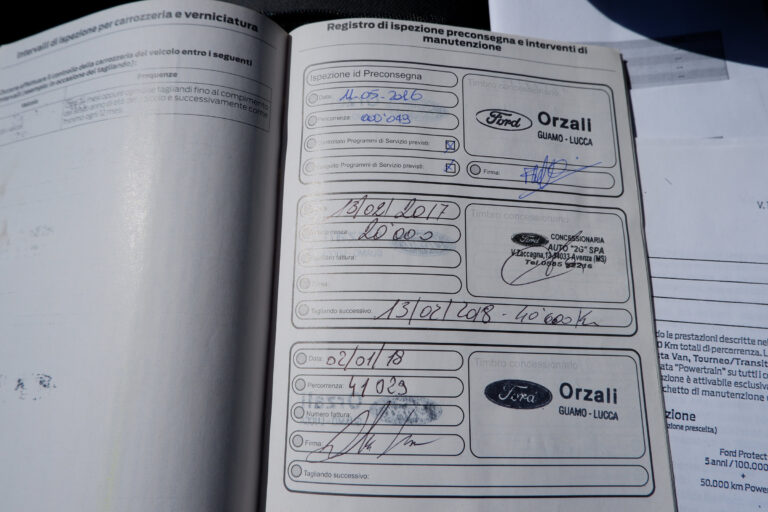 Intervalli di ispezione per carrozzeria e verniciatura
controllo della carrozzeria del veicolo entro i seguenti
intervalli (esempio: in occasione dei tagliandi):
Veicolo
Frequenze
tagliandi fino al compimento
e successivamente
ogni 12 mesi
Registro di ispezione preconsegna e interventi di
manutenzione
Ispezione id Preconsegna
Data: 11-05-2016
Percorrenza: 000'049
Controllato Programmi di Servizio previsti:
Programmi di Servizio previsti:
Timbro concessionario
Ford Orzali
GUAMO - LUCCA
Firma:
13/02/2017
20'000
fattura:
Firma:
Tagliando successivo: 13/02/2018 - 40'000 Km
Timbro concessionario
Ford CONCESSIONARIA
AUTO "2G" SPA
Avenza (MS)
Data: 02/01/18
Percorrenza: 41029
Numero fattura:
Firma:
Tagliando successivo:
Timbro concessionario
Ford Orzali
GUAMO - LUCCA
V.
le prestazioni descritte
Km totali di percorrenza.
Van, Tourneo/Transit
"Powertrain" su tutti i
è attivabile
di manutenzione
Ford Protect
5 anni / 100.000
+
50.000 km